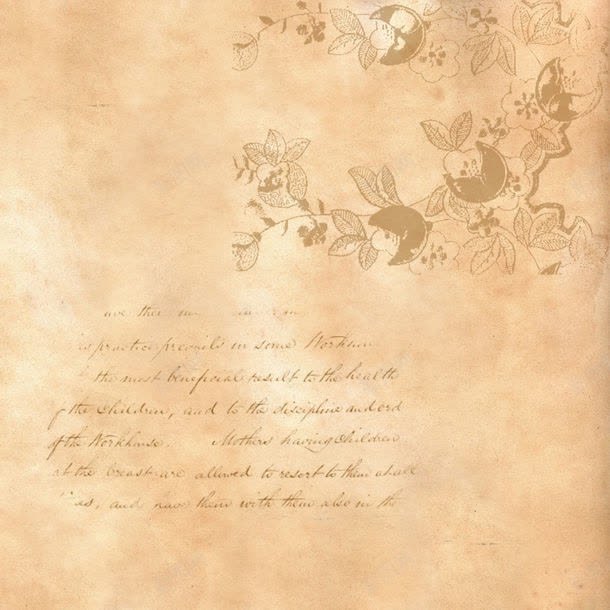 ave ther
is practice prevails in some Workhou
the most beneficial result to the health
of the Children, and to the discipline and ord
of the Workhouse. Mothers having Children
at the breast are allowed to resort to them at all
es, and have them with them also in the